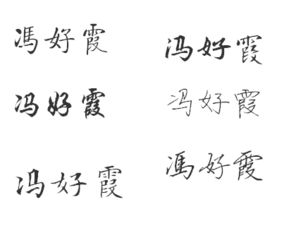 馮好霞
冯好霞
冯好霞
冯好霞
冯好霞
馮好霞